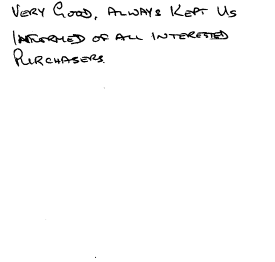 VERY GOOD, ALWAYS KEPT US
INFORMED OF ALL INTERESTED
PURCHASERS.